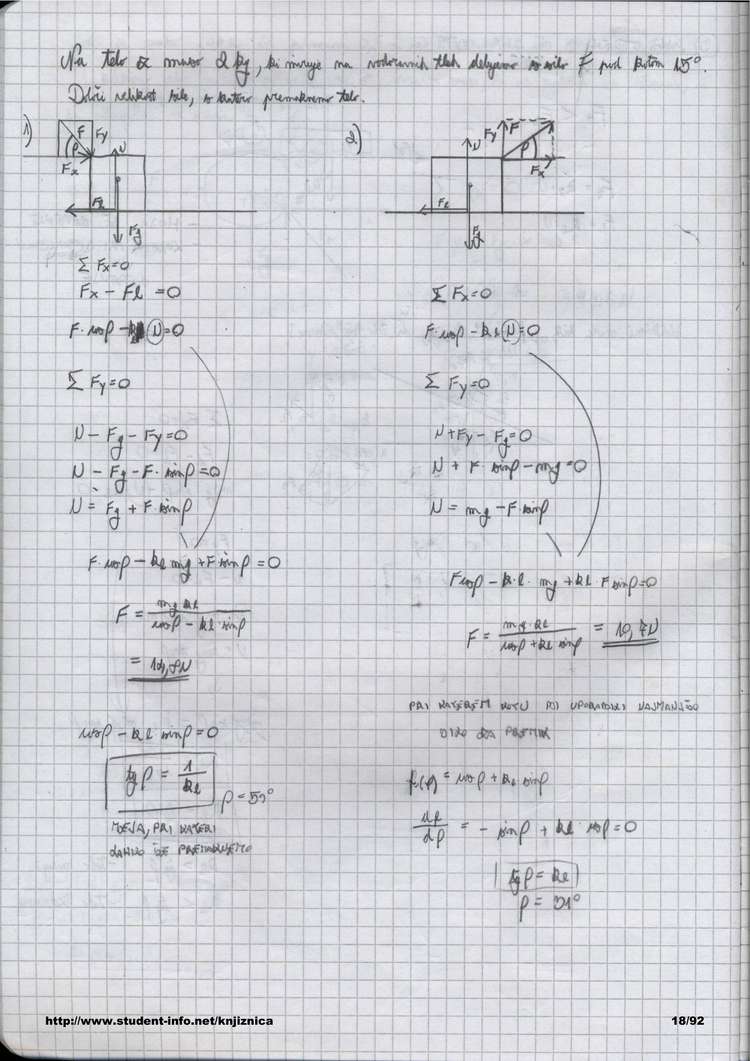 Na telo z maso 2kg, ki miruje na vodoravnih tleh delujemo s silo F pod kotom 15°.
Določi velikost sile, s katero premaknemo telo.
1)
F Fy
ρ
Fx
N
Fl
Fg
ΣFx=0
Fx - Fl = 0
F·cosρ - kl N = 0
ΣFy=0
N - Fg - Fy = 0
N - Fg - F· sinρ = 0
N = Fg + F· sinρ
F· cosρ - kl mg + F sinρ = 0
F = mg kl / cosρ - kl· sinρ
cosρ - kl· sinρ = 0
tgρ = 1/kl
MEJA, PRI KATERI
LAHKO ŠE PREMAKNEMO
2)
Fy F
ρ
Fx
N
Fl
Fg
ΣFx=0
F·cosρ - kl N = 0
ΣFy=0
N + Fy - Fg = 0
N + F· sinρ - mg = 0
N = mg - F· sinρ
F cosρ - kl· mg + kl· F sinρ = 0
F = mg·kl / cosρ + kl sinρ = 10,7N
PRI KATEREM KOTU JO UPORABIMO NAJMANJŠO
SILO ZA PREMIK
f(ρ) = cosρ + kl sinρ
df/dρ = - sinρ + kl cosρ = 0
tgρ = kl
ρ = 31°
http://www.student-info.net/knjiznica
18/92